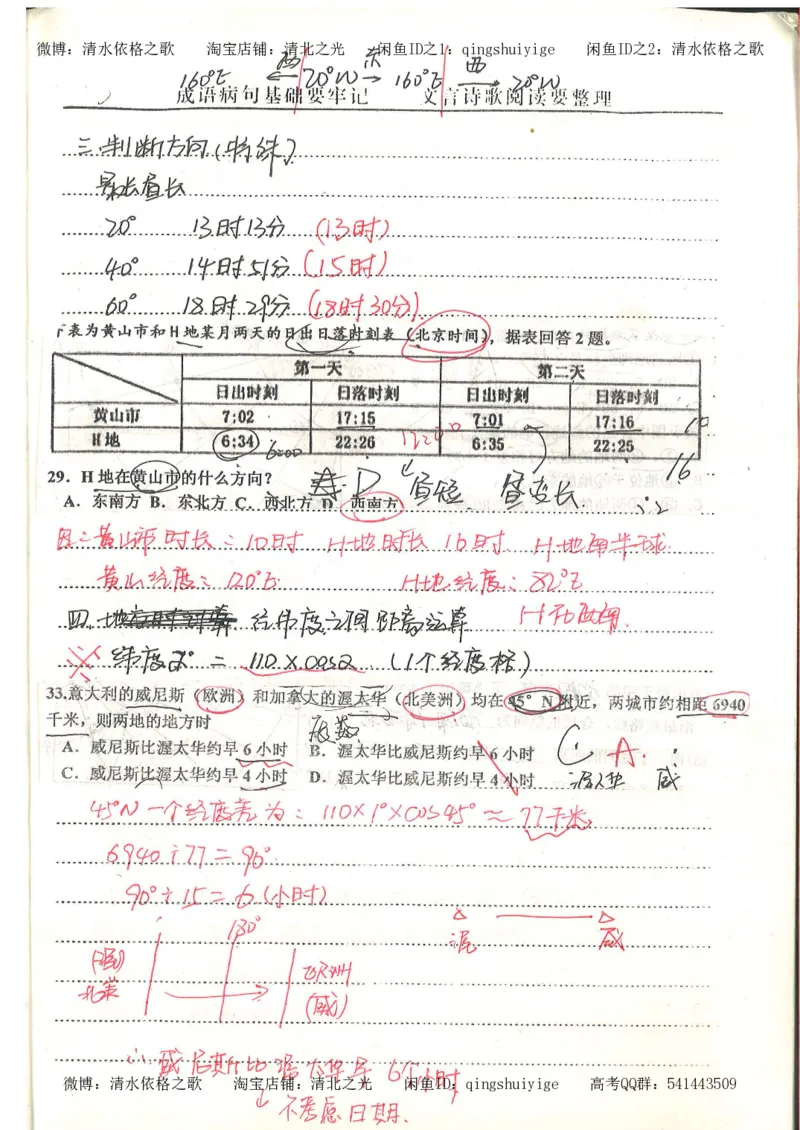 微博：清水依格之歌 淘宝店铺：清北之光 闲鱼ID之1：qingshuiyige 闲鱼ID之2：清水依格之歌
160°E ←西 20°W 东→ 160°E 西→ 20°W
成语病句基础要牢记 文言诗歌阅读要整理
三.判断方向(特殊)
昼长
20° 13时13分 (13时)
40° 14时51分 (15时)
60° 18时29分 (18时30分)
下表为黄山市和H地某月两天的日出日落时刻表（北京时间），据表回答2题。
第一天 第二天
日出时刻 日落时刻 日出时刻 日落时刻
黄山市 7:02 17:15 7:01 17:16 10
H地 6:34 22:26 6:35 22:25 16
6:00
29．H地在黄山市的什么方向？ D 昼短 昼变长
A．东南方 B．东北方 C．西北方 D．西南方
黄山市时长：10时 H地时长16时 H地南半球
黄山经度：120°E H地经度：82°E
四.经纬度之间距离运算 H在西南.
※纬度α° = 110×cosα (1个经度格)
33.意大利的威尼斯（欧洲）和加拿大的渥太华（北美洲）均在45°N附近，两城市约相距6940
千米，则两地的地方时
A．威尼斯比渥太华约早6小时 B．渥太华比威尼斯约早6小时 C A
C．威尼斯比渥太华约早4小时 D．渥太华比威尼斯约早4小时 渥太华 威
45°N一个经度差为：110×1°×cos45°≈77千米
6940÷77=90°
90°÷15=6(小时)
180°
渥 威
(渥) 北美
欧洲 (威)
∴威尼斯比渥太华早6个小时
微博：清水依格之歌 淘宝店铺：清北之光 闲鱼ID：qingshuiyige 高考QQ群：541443509
不考虑日期.